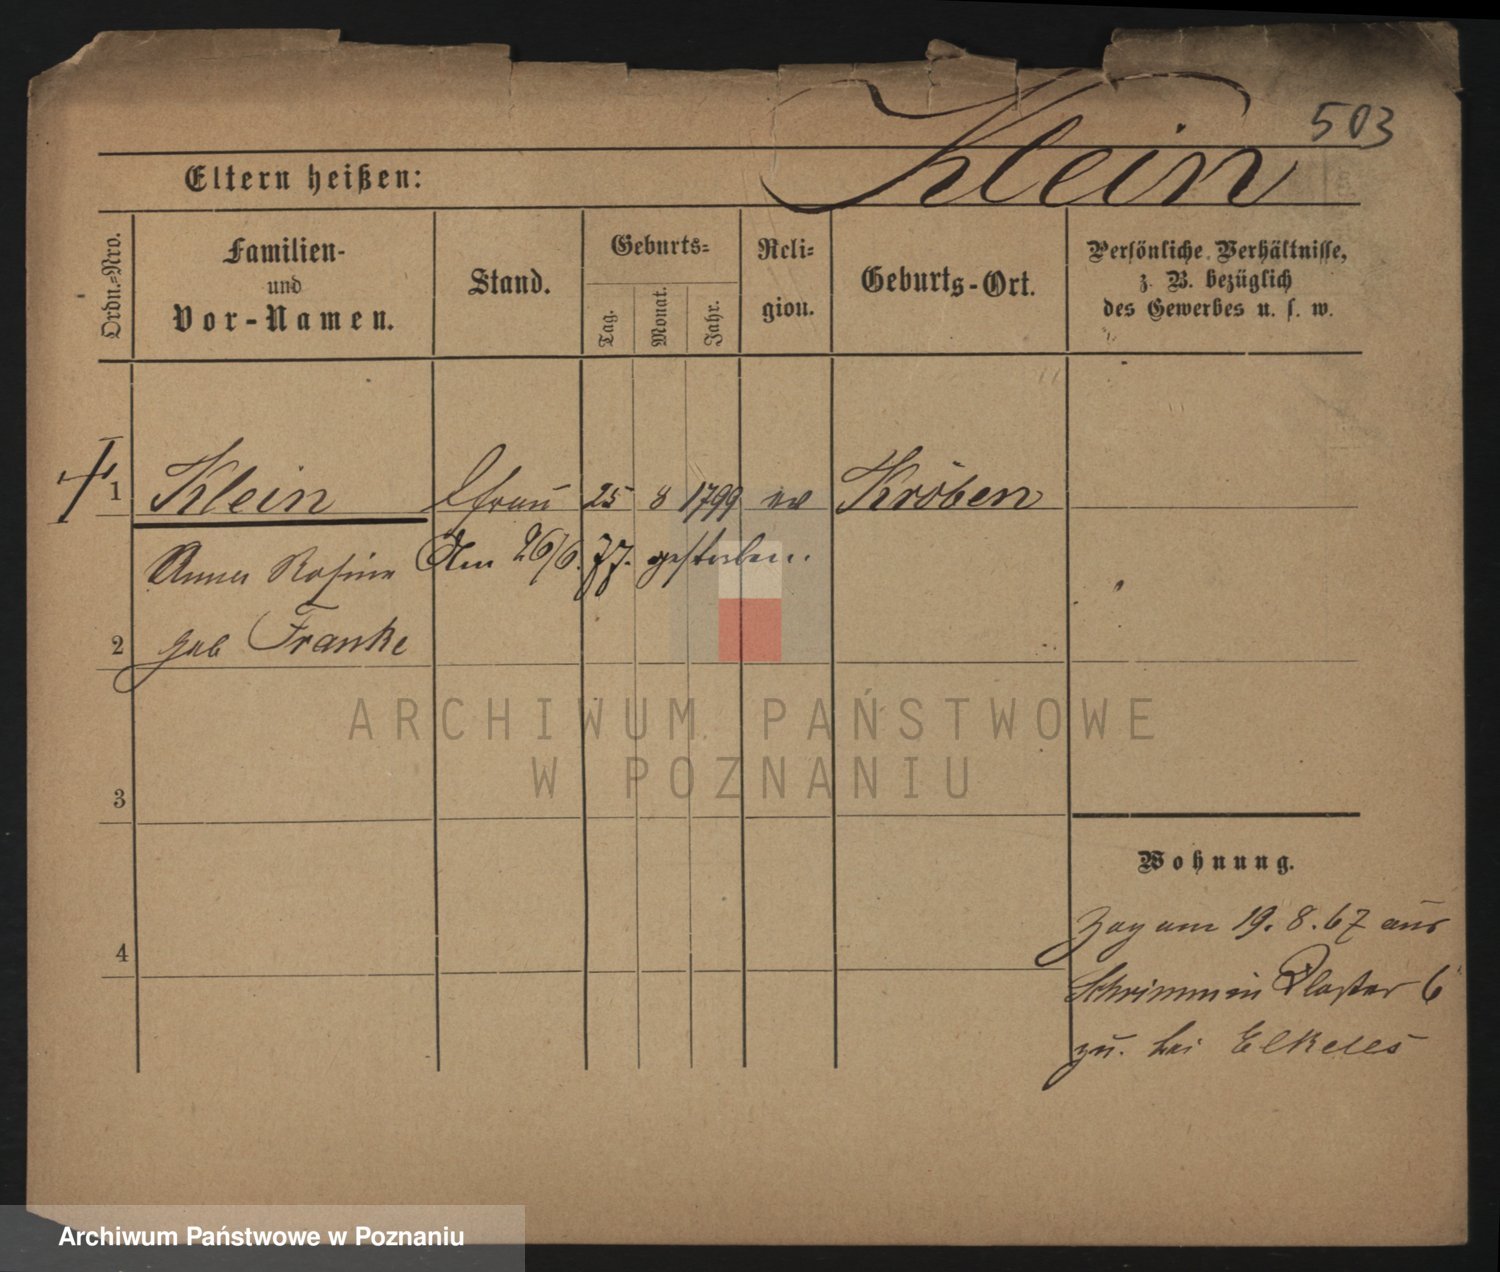 503
Klein
Eltern heißen:
Ordn.-Nro.
Familien-
und
Vor-Namen.
Stand.
Geburts-
Tag.
Monat.
Jahr.
Reli-
gion.
Geburts-Ort.
Persönliche Verhältnisse,
z. B. bezüglich
des Gewerbes u. s. w.
1 Klein Efrau 25 8 1799 ev Kröben
Anna Rosine Am 26/6. 77. gestorben.
2 geb Franke
3
4
Wohnung.
Zog am 19. 8. 67 aus
Schrimm in 6
zu. bei Elkeles
ARCHIWUM PAŃSTWOWE
W POZNANIU
Archiwum Państwowe w Poznaniu